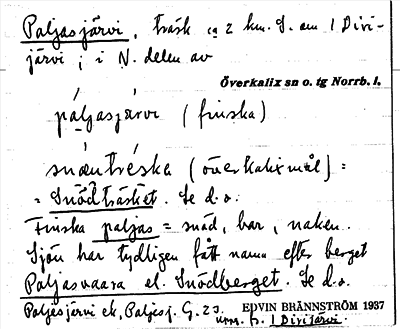 Paljasjärvi, träsk ca 2 km. S. om 1 Divi-
järvi ; i N. delen av
Överkalix sn o. tg Norrb. l.
páljasjärvi (finska)
snœntréska (överkalixmål) =
= Snödträsket. Se d.o.
Finska paljas = snöd, bar, naken.
Sjön har tydligen fått namn efter berget
Paljasvaara el. Snödberget. Se d.o.
Paljesjärvi ek, Paljesj. G. 23.
EDVIN BRÄNNSTRÖM 1937
1 Divijärvi.